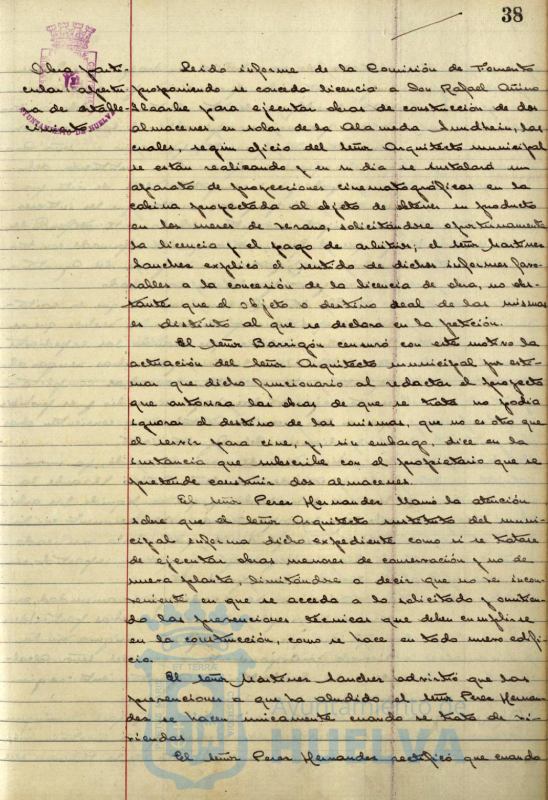 38
Obra parti-
cular apertu-
ra de estable-
cimiento
AYUNTAMIENTO DE HUELVA
Leido informe de la Comisión de Fomento
proponiendo se conceda licencia a Don Rafael Añino
Ilbarbe para ejecutar obras de construcción de dos
almacenes en solar de la Alameda Sundheim, las
cuales, según oficio del señor Arquitecto municipal
se están realizando y en su dia se instalará un
aparato de proyecciones cinematográficas en la
cabina proyectada al objeto de obtener su producto
en los meses de verano, solicitándose oportunamente
la licencia y el pago de arbitrios; el señor Martinez
Sanchez explicó el sentido de dichos informes favo-
rables a la concesión de la licencia de obra, no obs-
tante que el objeto o destino ideal de las mismas
es distinto al que se declara en la petición.
El señor Barrigón censuró con este motivo la
actuación del señor Arquitecto municipal por esti-
mar que dicho funcionario al redactar el proyecto
que autoriza las obras de que se trata no podia
ignorar el destino de las mismas, que no es otro que
el servir para cine, y, sin embargo, dice en la
instancia que subscribe con el propietario que se
pretende construir dos almacenes.
El señor Perez Hernandez llamó la atención
sobre que el señor Arquitecto sustituto del muni-
cipal informa dicho expediente como si se tratase
de ejecutar obras menores de conservación y no de
nueva planta, limitándose a decir que no ve incon-
veniente en que se acceda a lo solicitado y omitien-
do las prevenciones técnicas que deben cumplirse
en la construcción, como se hace en todo nuevo edifi-
cio.
El señor Martinez Sanchez advirtió que las
prevenciones a que ha aludido el señor Perez Hernan-
dez se hacen unicamente cuando se trata de vi-
viendas
El señor Perez Hernandez rectificó que cuando
Ayuntamiento de
HUELVA